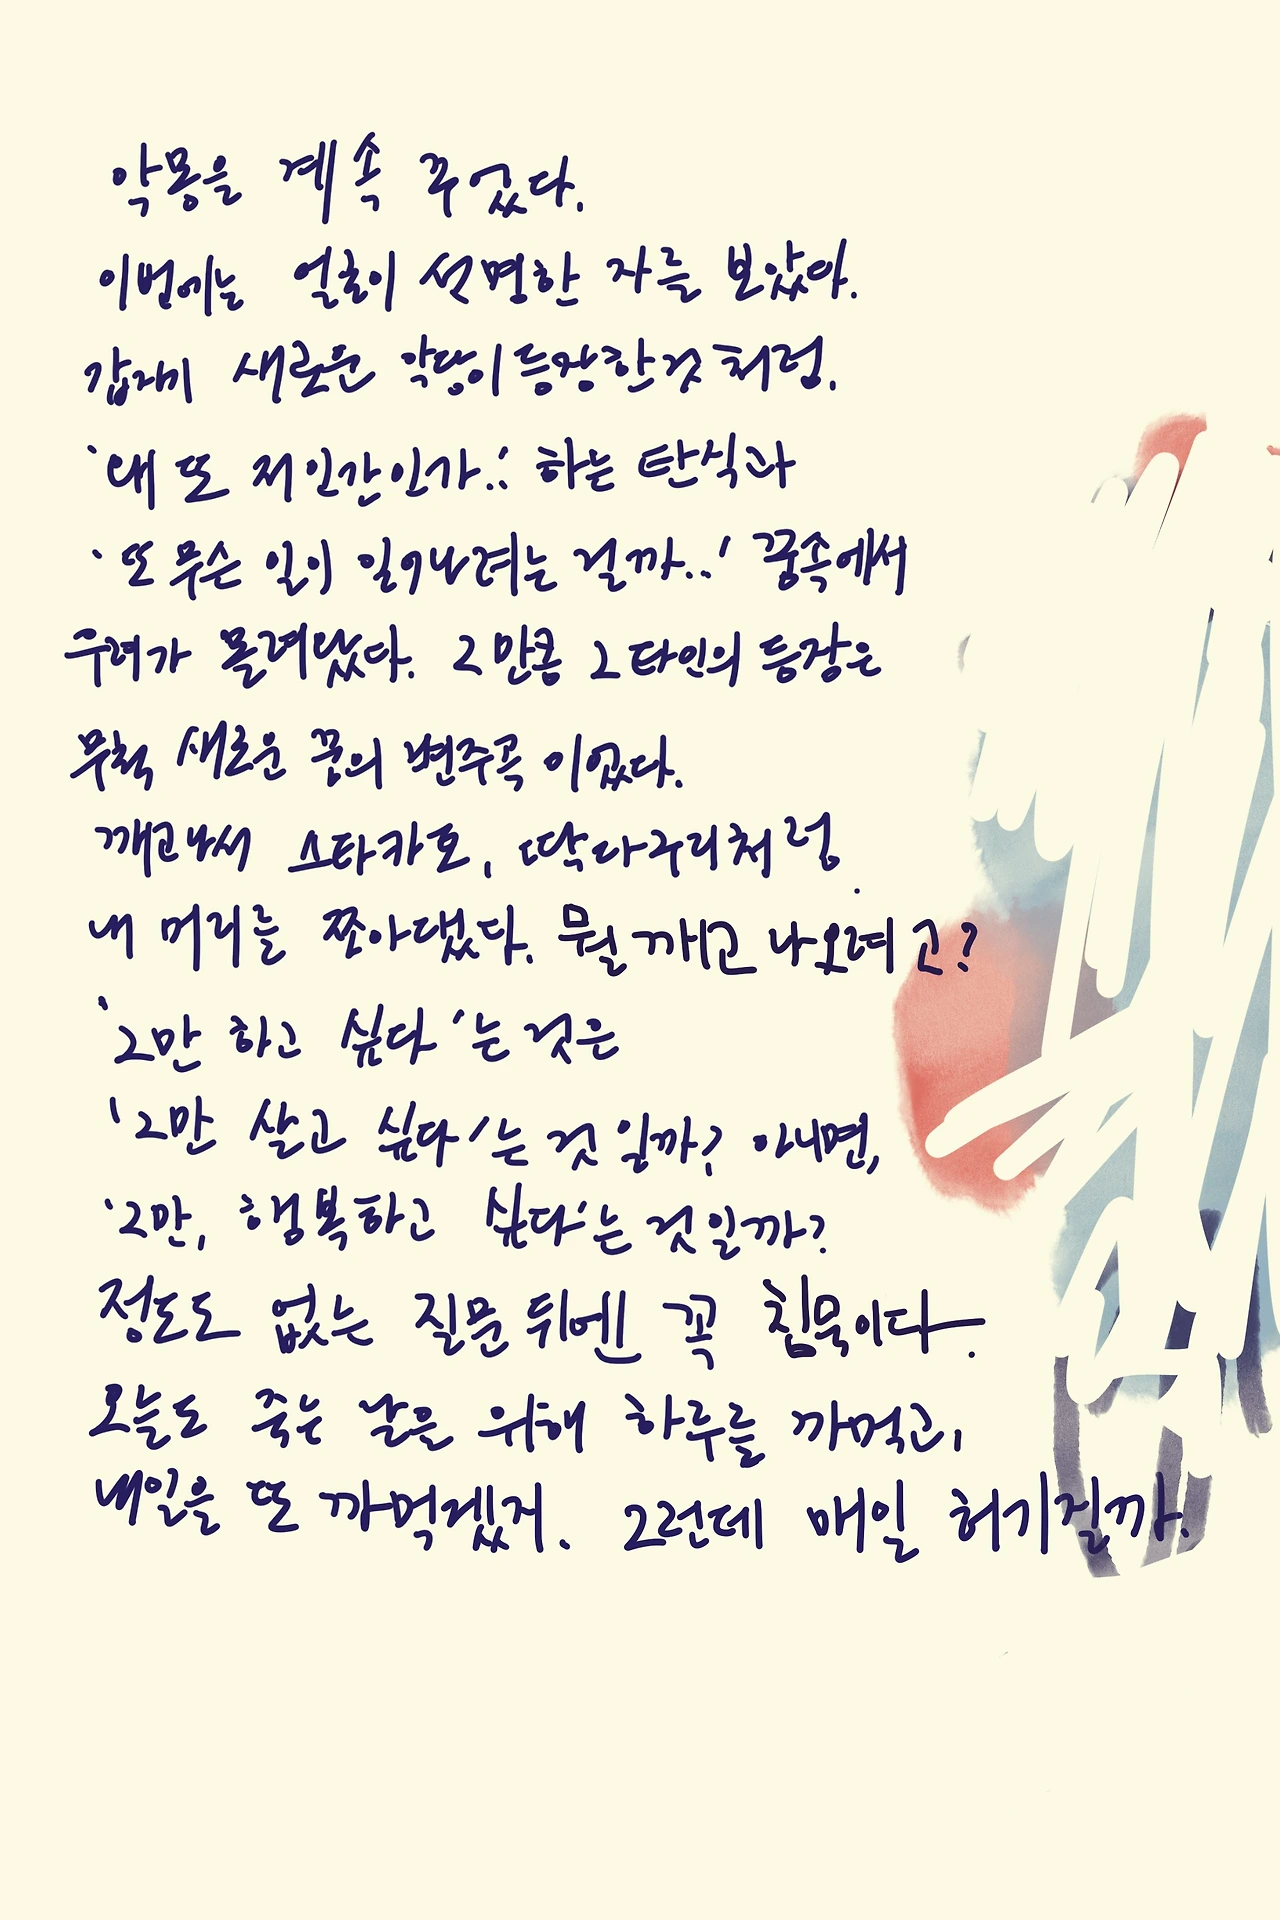 악몽을 계속 꾸었다.
이번에는 얼굴이 선명한 자를 보았다.
갑자기 새로운 악당이 등장한것 처럼.
'왜 또 저인간인가..' 하는 탄식과
'또 무슨 일이 일어나려는 걸까..' 꿈속에서
우려가 몰려왔다. 그만큼 그 타인의 등장은
무척 새로운 꿈의 변주곡 이었다.
깨고나서 스타카토, 딱따구리처럼
내 머리를 쪼아댔다. 뭘 깨고 나오려고?
'그만 하고 싶다'는 것은
'그만 살고 싶다'는 것일까? 아니면,
'그만, 행복하고 싶다'는 것일까?
정도도 없는 질문 뒤엔 꼭 침묵이다.
오늘도 죽는 날을 위해 하루를 까먹고,
내일을 또 까먹겠지. 그런데 매일 허기질까.